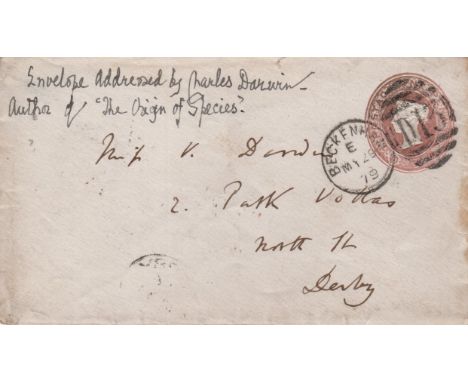 Envelope Addressed by Charles Darwin
Author of "The Origin of Species".
BECKENHAM
E
MY 28
79
Miss V. Darwin
2. Park Vottas
North St
Derby